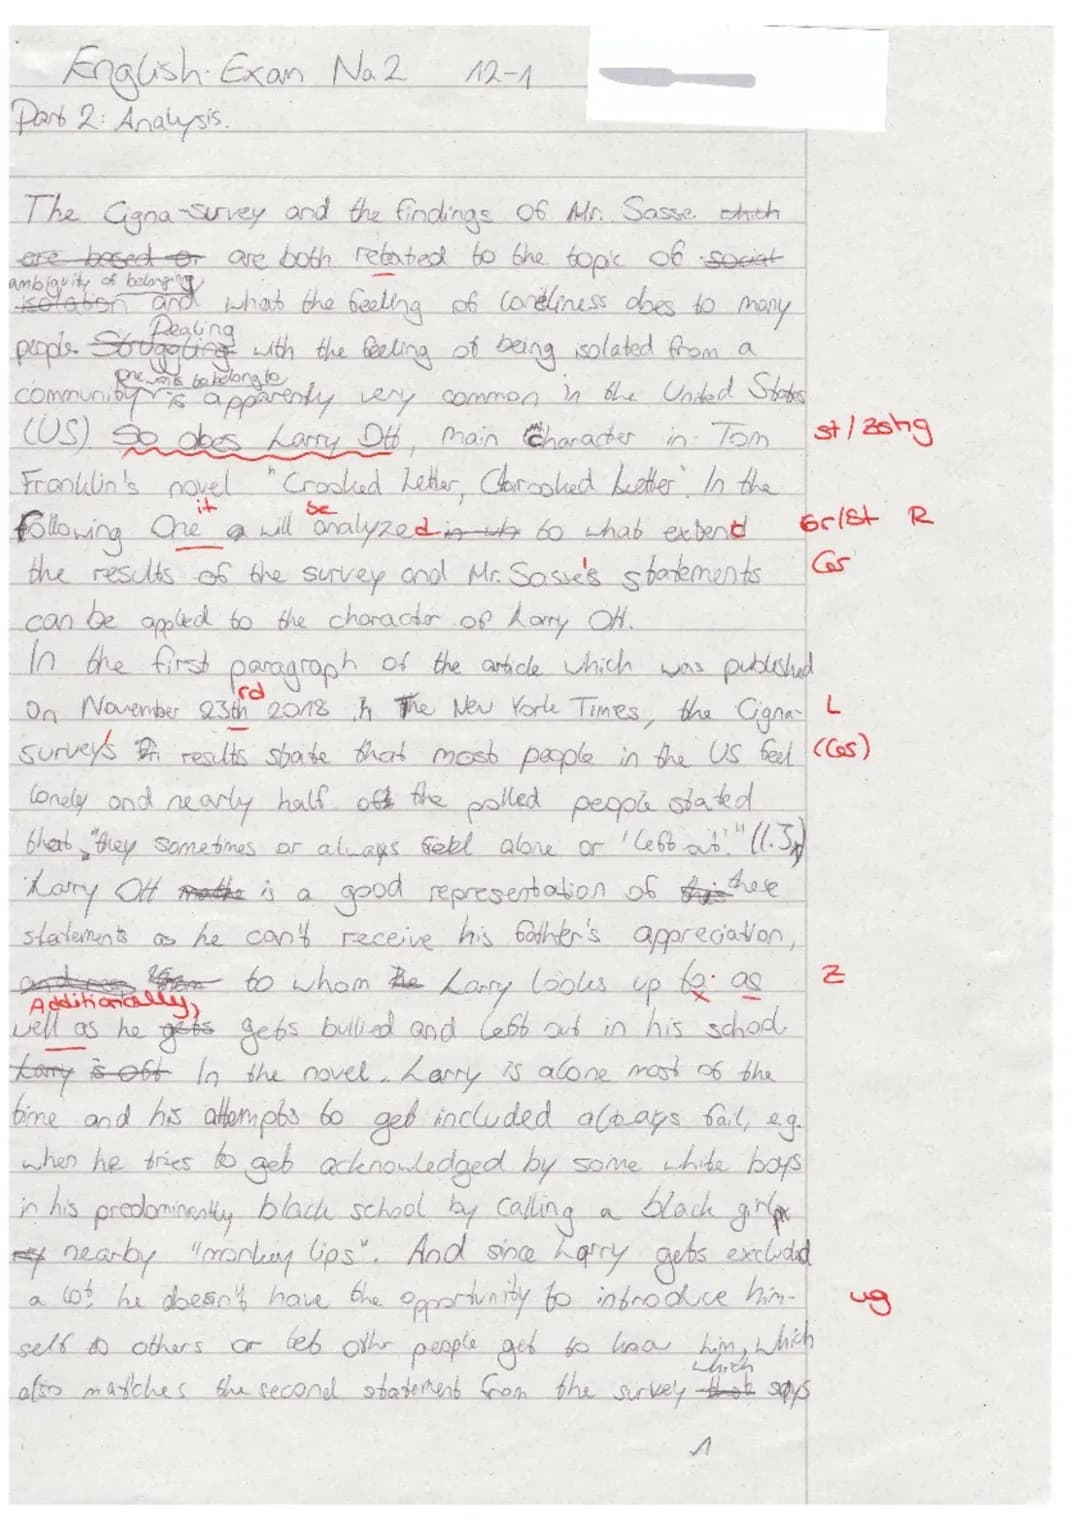 English-Exam No. 2 12-1
Part 2: Analysis.
The Cigna-survey and the findings of Mr. Sasse which
are based on are both retated to the topic of social
ambiguity of belonging
isolation and what the feeling of loneliness does to many
Dealing
people. Struggling with the feeling of being isolated from a
one wants to belong to
community is apparently very common in the United States
(US). So does Larry Ott, main character in Tom st/zshg
Franklin's novel "Crooked Letter, Clarooked Letter". In the
it be
following One a will analyzed to what extend Gr/St R
the results of the survey and Mr. Sasse's statements Cos
can be applied to the character of Larry Ott.
In the first paragraph of the article which was published
rd
on November 23th 2018 in The New York Times, the Cigna- L
survey's results state that most people in the US feel (Cos)
lonely and nearly half of the polled people stated
that "they sometimes or always feel alone or 'left out'" (l.3)
Larry Ott is a good representation of this these
statements as he can't receive his father's appreciation,
to whom he Larry looks up to. as Z
Additionally,
well as he gets gets bullied and left out in his school.
Larry is oft In the novel, Larry is alone most of the
time and his attempts to get included always fail, e.g.
when he tries to get acknowledged by some white boys
in his predominently black school by calling a black girl
nearby "monkey lips". And since Larry gets excluded
a lot, he doesn't have the opportunity to introduce him- ug
self to others or let other people get to know him, which
which
also matches the second statement from the survey that says
1